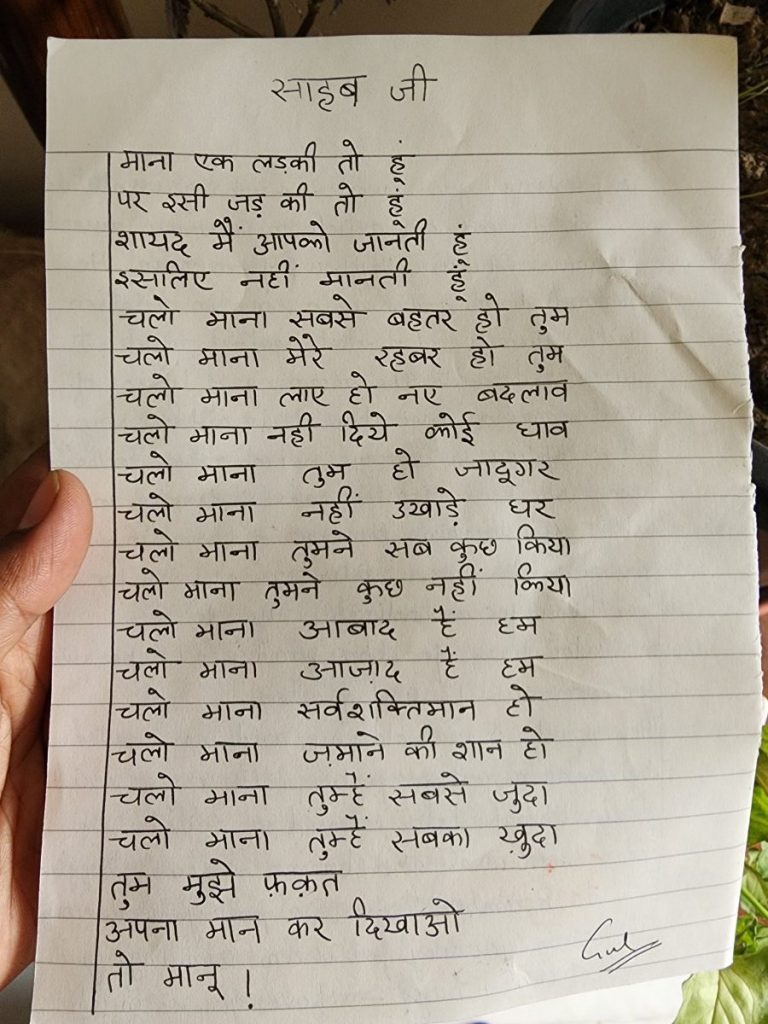 साहब जी
माना एक लड़की तो हूं
पर इसी जड़ की तो हूं
शायद मैं आपको जानती हूं
इसलिए नहीं मानती हूं
चलो माना सबसे बहतर हो तुम
चलो माना मेरे रहबर हो तुम
चलो माना लाए हो नए बदलाव
चलो माना नही दिये कोई घाव
चलो माना तुम हो जादूगर
चलो माना नहीं उखाड़े घर
चलो माना तुमने सब कुछ किया
चलो माना तुमने कुछ नहीं किया
चलो माना आबाद हैं हम
चलो माना आज़ाद हैं हम
चलो माना सर्वशक्तिमान हो
चलो माना ज़माने की शान हो
चलो माना तुम्हें सबसे जुदा
चलो माना तुम्हें सबका ख़ुदा
तुम मुझे फ़क़त
अपना मान कर दिखाओ
तो मानू !